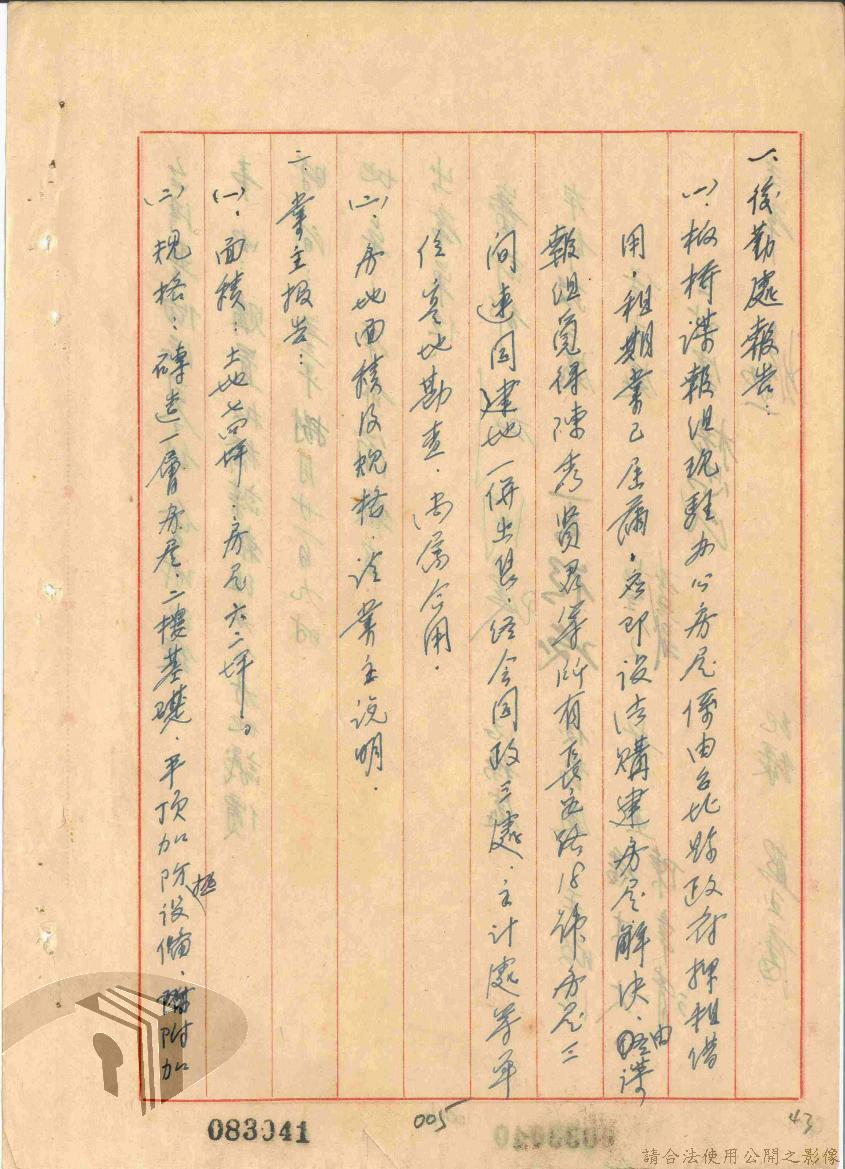 一、後勤處報告：
(一)、板橋諜報組現駐办公房屋係由台北縣政府撥租借
用，租期業已屆滿，亟即設法購建房屋解決，由諜
報組覓得陳秀賢君等所有長安路18號房屋三
间連同建地一併出售，經会同政三處、主计處等單
位實地勘查，尚属合用。
(二)、房地面積及規格，請業主说明。
二、業主报告：
(一)、面積：土地占坪，房屋六二坪。
(二)規格：磚造一層房屋，二樓基礎，平頂加防极设備，附加
083041
005
43
請合法使用公開之影像